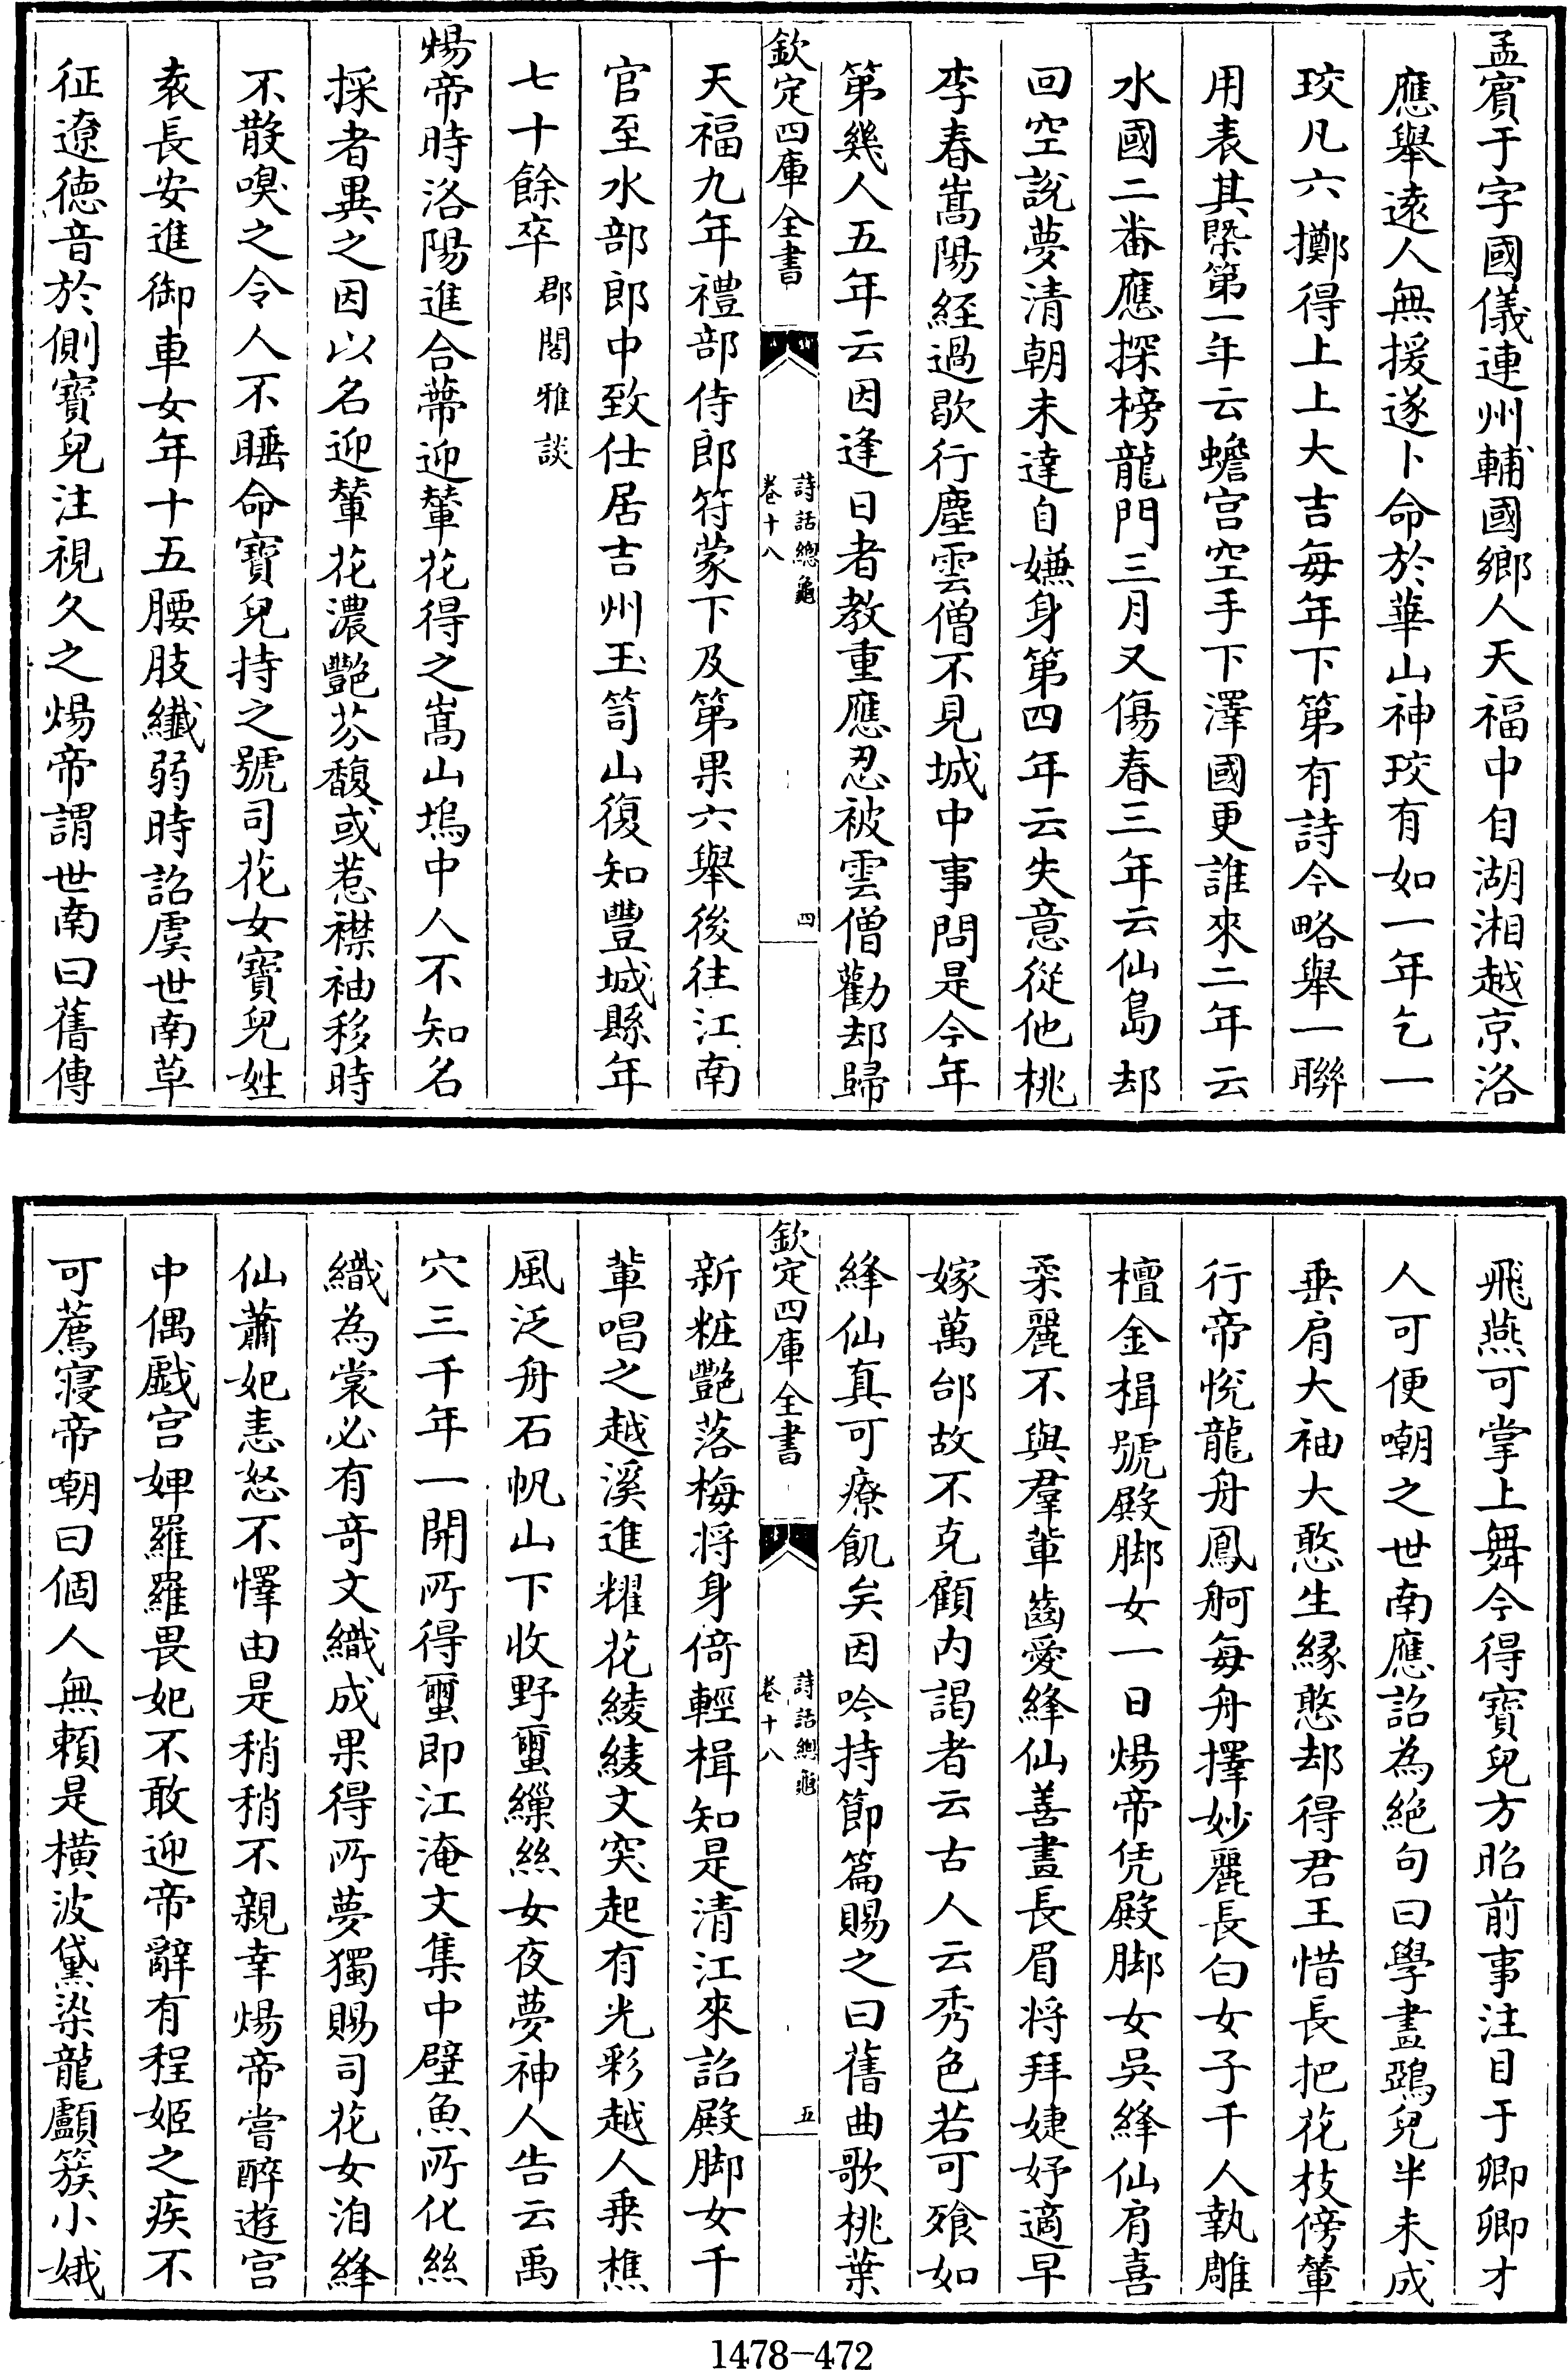 孟賓于字國儀連州輔國鄉人天福中自湖湘越京洛
應舉逺人無援遂卜命於華山神珓有如一年乞一
珓凡六擲得上上大吉每年下第有詩今略舉一聯
用表其槩第一年云蟾宮空手下澤國更誰來二年云
水國二番應探榜龍門三月又傷春三年云仙島却
回空說夢清朝未達自嫌身第四年云失意從他桃
李春嵩陽經過歇行塵雲僧不見城中事問是今年
第幾人五年云因逢日者教重應忍被雲僧勸却歸
欽定四庫全書
詩話總龜
卷十八
四
天福九年禮部侍郎符蒙下及第果六舉後往江南
官至水部郎中致仕居吉州玉笥山復知豐城縣年
七十餘卒郡閣雅談
煬帝時洛陽進合蔕迎輦花得之嵩山塢中人不知名
採者異之因以名迎輦花濃艷芬馥或惹襟袖移時
不散嗅之令人不睡命寶兒持之號司花女寶兒姓
袁長安進御車女年十五腰肢纖弱時詔虞世南草
征遼徳音於側寶兒注視久之煬帝謂世南曰舊傳
飛燕可掌上舞今得寶兒方昭前事注目于卿卿才
人可便嘲之世南應詔為絶句曰學畫鵶兒半未成
垂肩大袖大憨生縁憨却得君王惜長把花枝傍輦
行帝悅龍舟鳳舸每舟擇妙麗長白女子千人執雕
檀金楫號殿脚女一日煬帝凭殿脚女吳絳仙肩喜
柔麗不與羣輩齒愛絳仙善畫長眉將拜婕妤適早
嫁萬邰故不克顧内謁者云古人云秀色若可飱如
絳仙真可療飢矣因吟持節篇賜之曰舊曲歌桃葉
欽定四庫全書
詩話總龜
卷十八
五
新粧艷落梅將身倚輕楫知是清江來詔殿脚女千
軰唱之越溪進耀花綾綾文突起有光彩越人乗樵
風泛舟石帆山下收野蠒繅絲女夜夢神人告云禹
穴三千年一開所得蠒即江淹文集中壁魚所化絲
織為裳必有竒文織成果得所夢獨賜司花女洎絳
仙蕭妃恚怒不懌由是稍稍不親幸煬帝嘗醉遊宮
中偶戲宮婢羅羅羅畏妃不敢迎帝辭有程姬之疾不
可薦寢帝嘲曰個人無頼是横波黛染龍顱簇小娥
1478-472